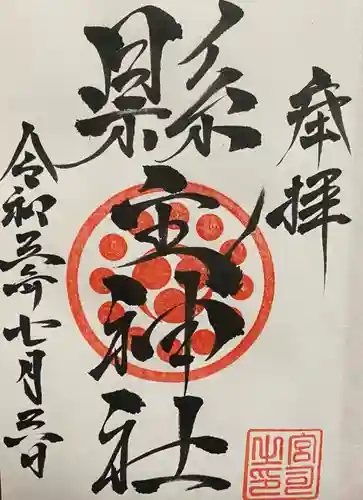 奉拝
縣主神社
令和五年七月五日
宮司之印